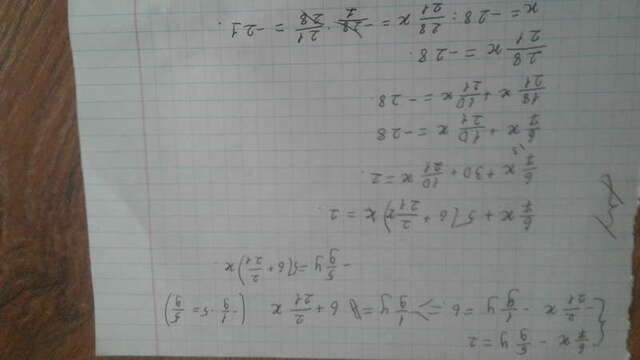 6/7 x - 5/9 y = 2
-2/21 x - 1/9 y = 6 => -1/9 y = 6 + 2/21 x (-1/9 · 5 = 5/9)
-5/9 y = 5(6 + 2/21) x.
6/7 x + 5(6 + 2/21 x) x = 2.
6/7 x + 30 + 10/21 x = 2.
6/7 \3 x + 10/21 x = -28
18/21 x + 10/21 x = -28.
28/21 x = -28.
x = -28 : 28/21 x = -28/1 · 21/28 = -21.